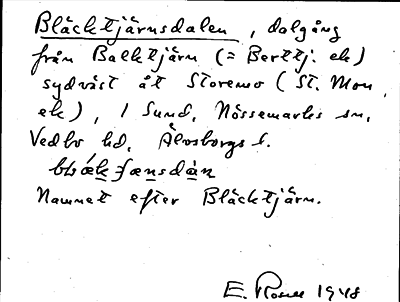 Bläcktjärnsdalen, dalgång
från Balktjärn (= Berttj. ek)
sydväst åt Storemo (St. Mon,
ek), i Sund, Nössemarks sn,
Vedbo hd, Älvsborgs l.
Namnet efter Bläcktjärn.
E. Rosell 1948